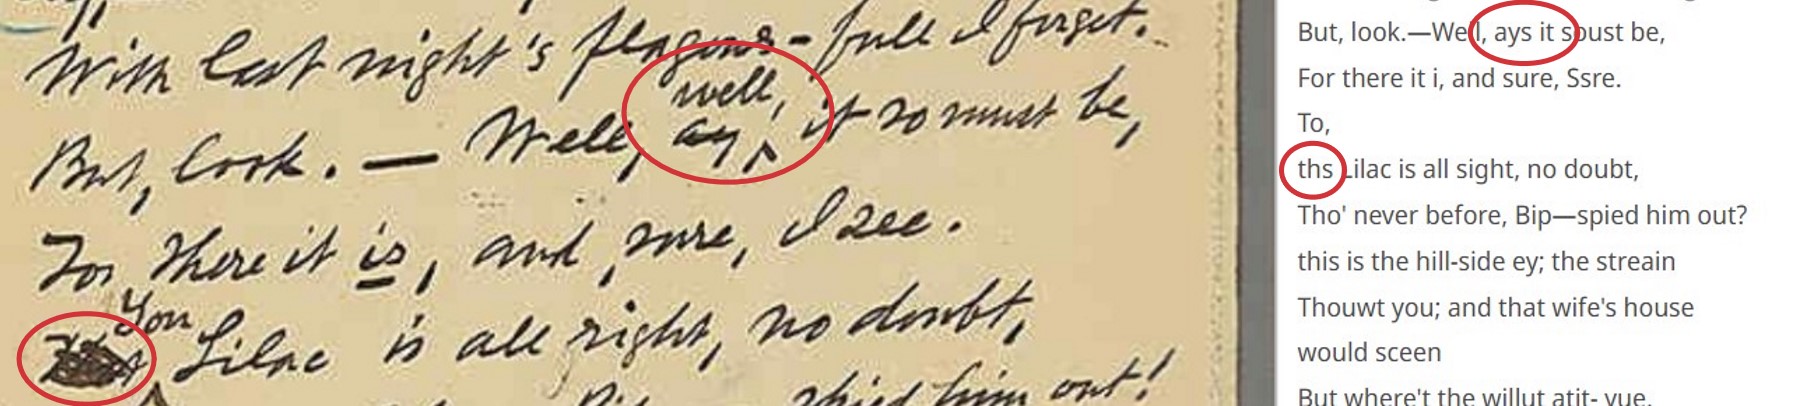 With last night's flagons - full I forget.
well,
But, look. — Well, ay, ^ it so must be,
For there it is, and, sure, I see.
You
Lilac is all right, no doubt,
spied him out!
But, look.—Well, ays it spust be,
For there it i, and sure, Ssre.
To,
ths Lilac is all sight, no doubt,
Tho' never before, Bip—spied him out?
this is the hill-side ey; the streain
Thouwt you; and that wife's house
would sceen
But where't the willut atit- vue.